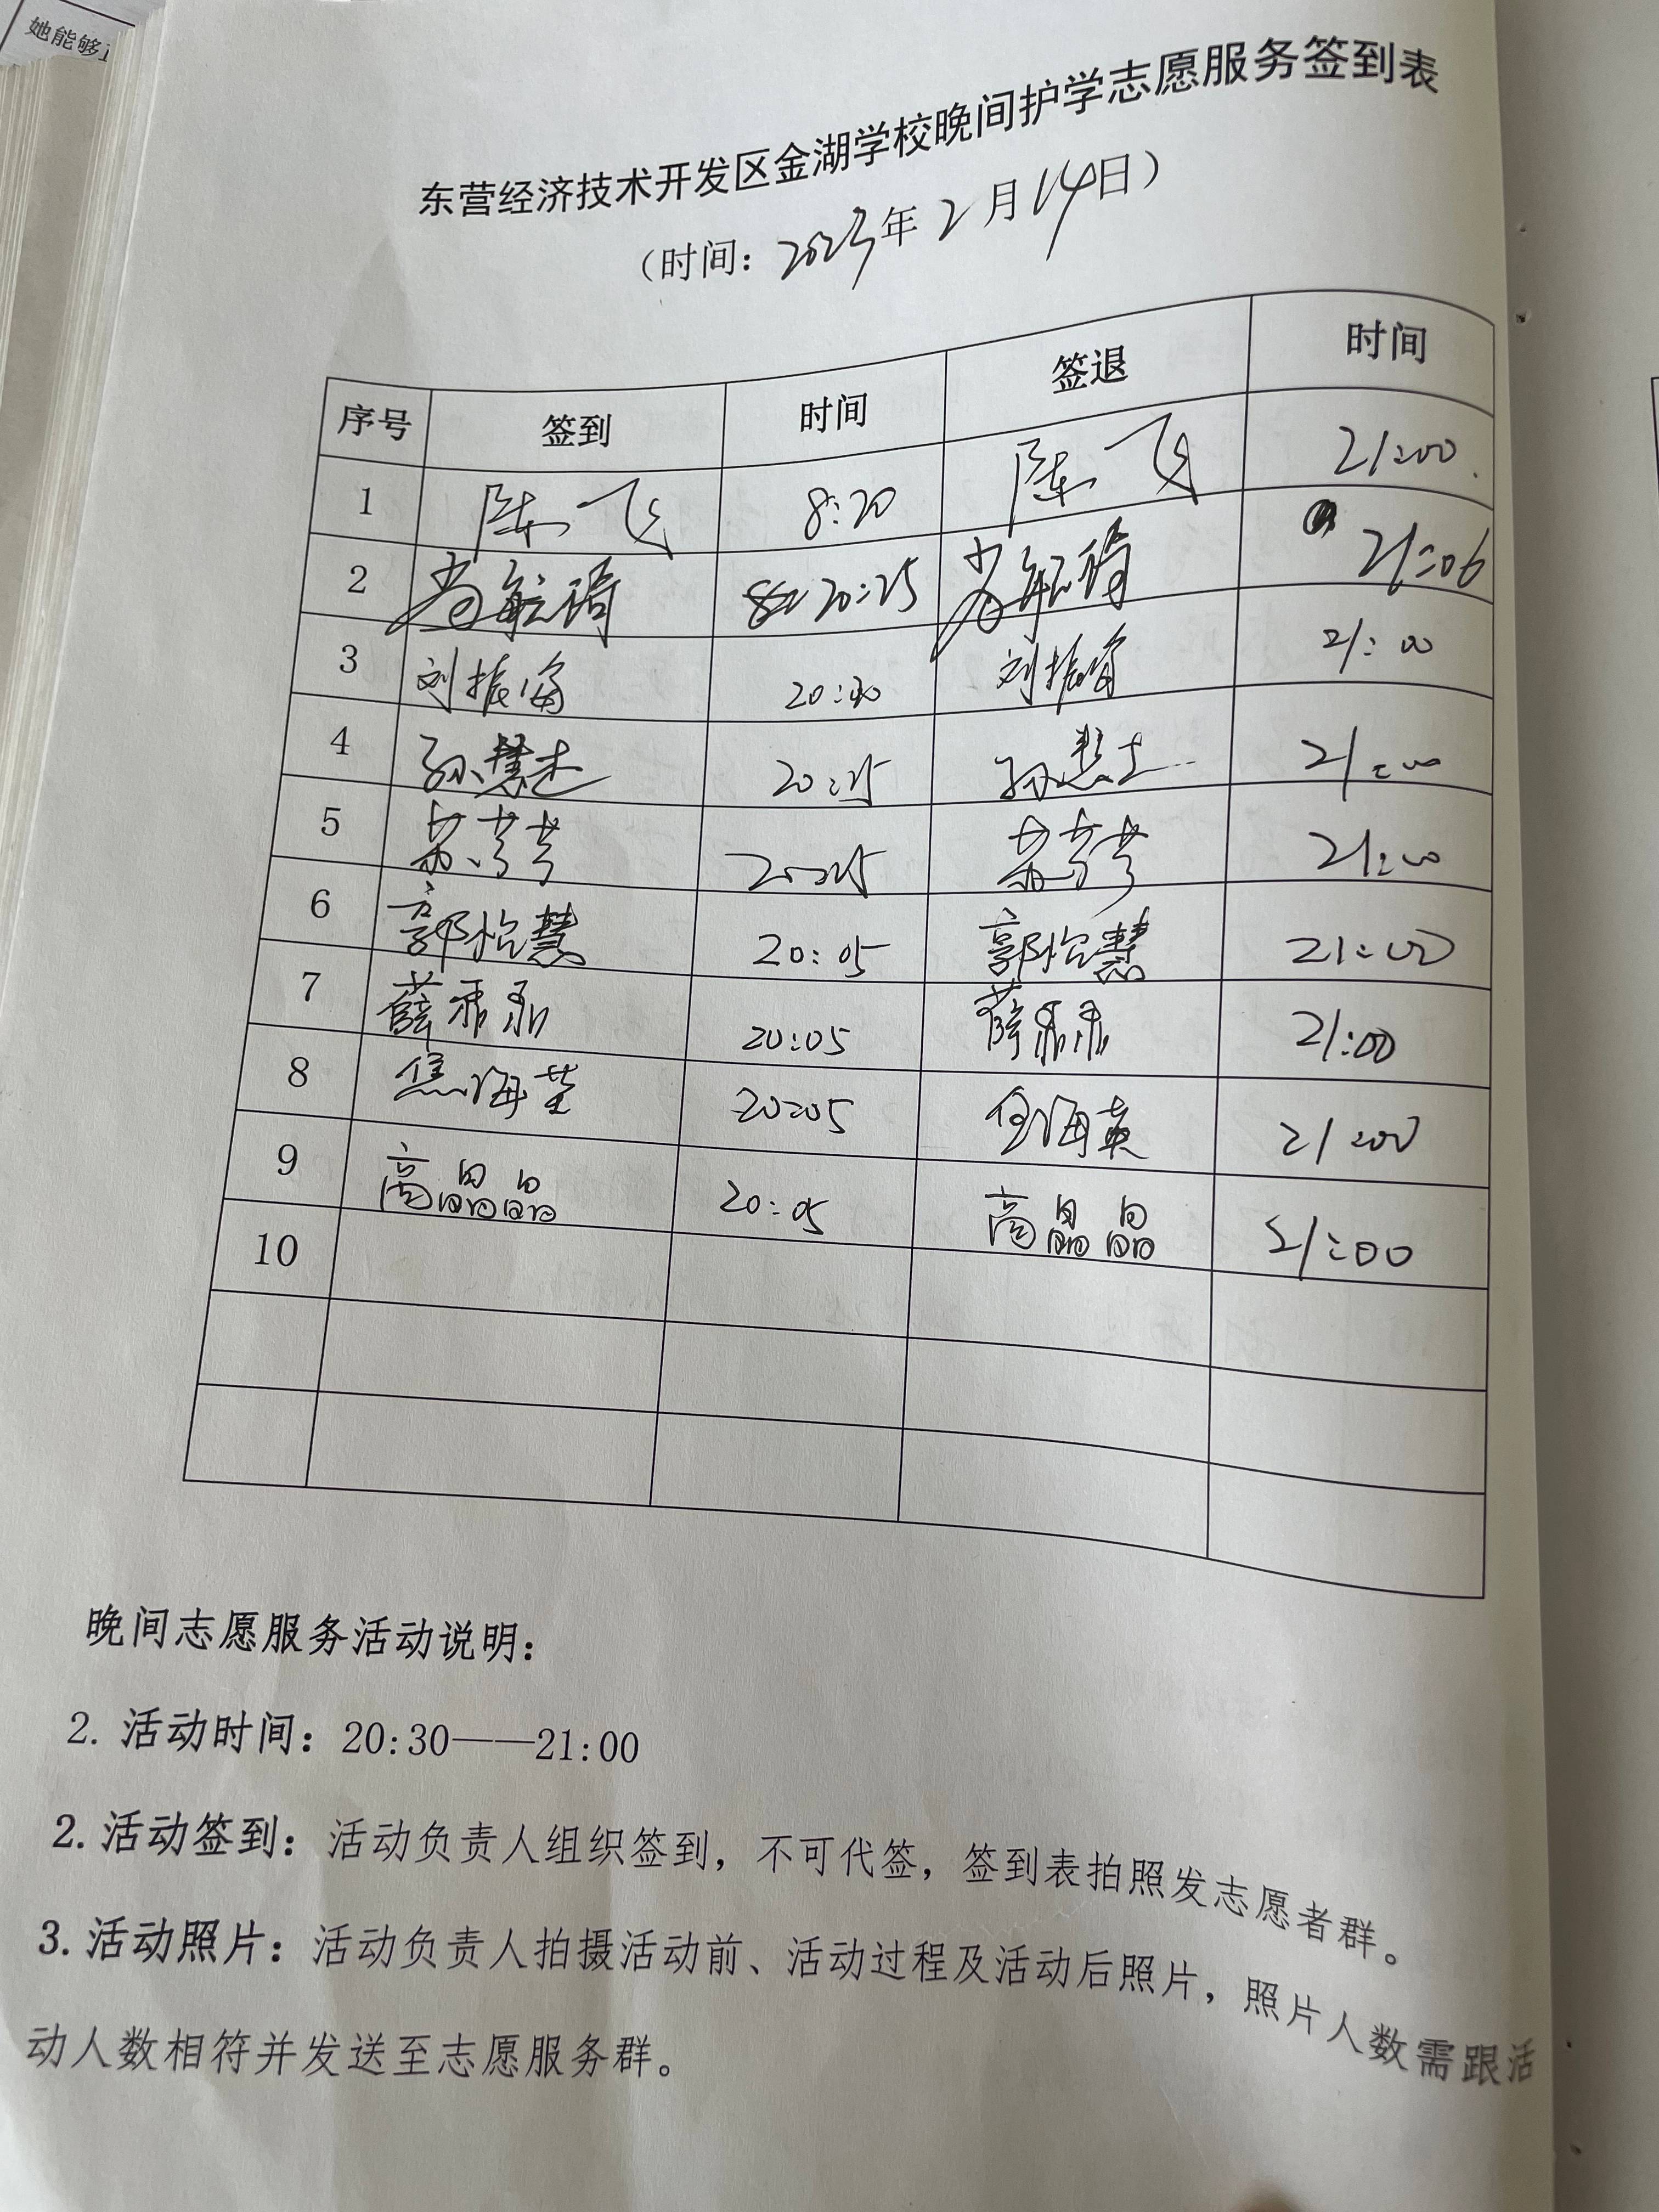 她能够
东营经济技术开发区金湖学校晚间护学志愿服务签到表
（时间：2023年2月14日）
序号 签到 时间 签退 时间
1 陈飞 8:20 陈飞 21:00
2 20:25 21:06
3 刘振 刘振 21:00
4 孙慧 20:25 孙慧 21:00
5 20:25 21:00
6 郭怡慧 20:05 郭怡慧 21:00
7 薛 20:05 薛 21:00
8 焦海英 20:05 焦海英 21:00
9 高晶晶 20:05 高晶晶 21:00
10
晚间志愿服务活动说明：
2. 活动时间：20:30——21:00
2. 活动签到：活动负责人组织签到，不可代签，签到表拍照发志愿者群。
3. 活动照片：活动负责人拍摄活动前、活动过程及活动后照片，照片人数需跟活
动人数相符并发送至志愿服务群。